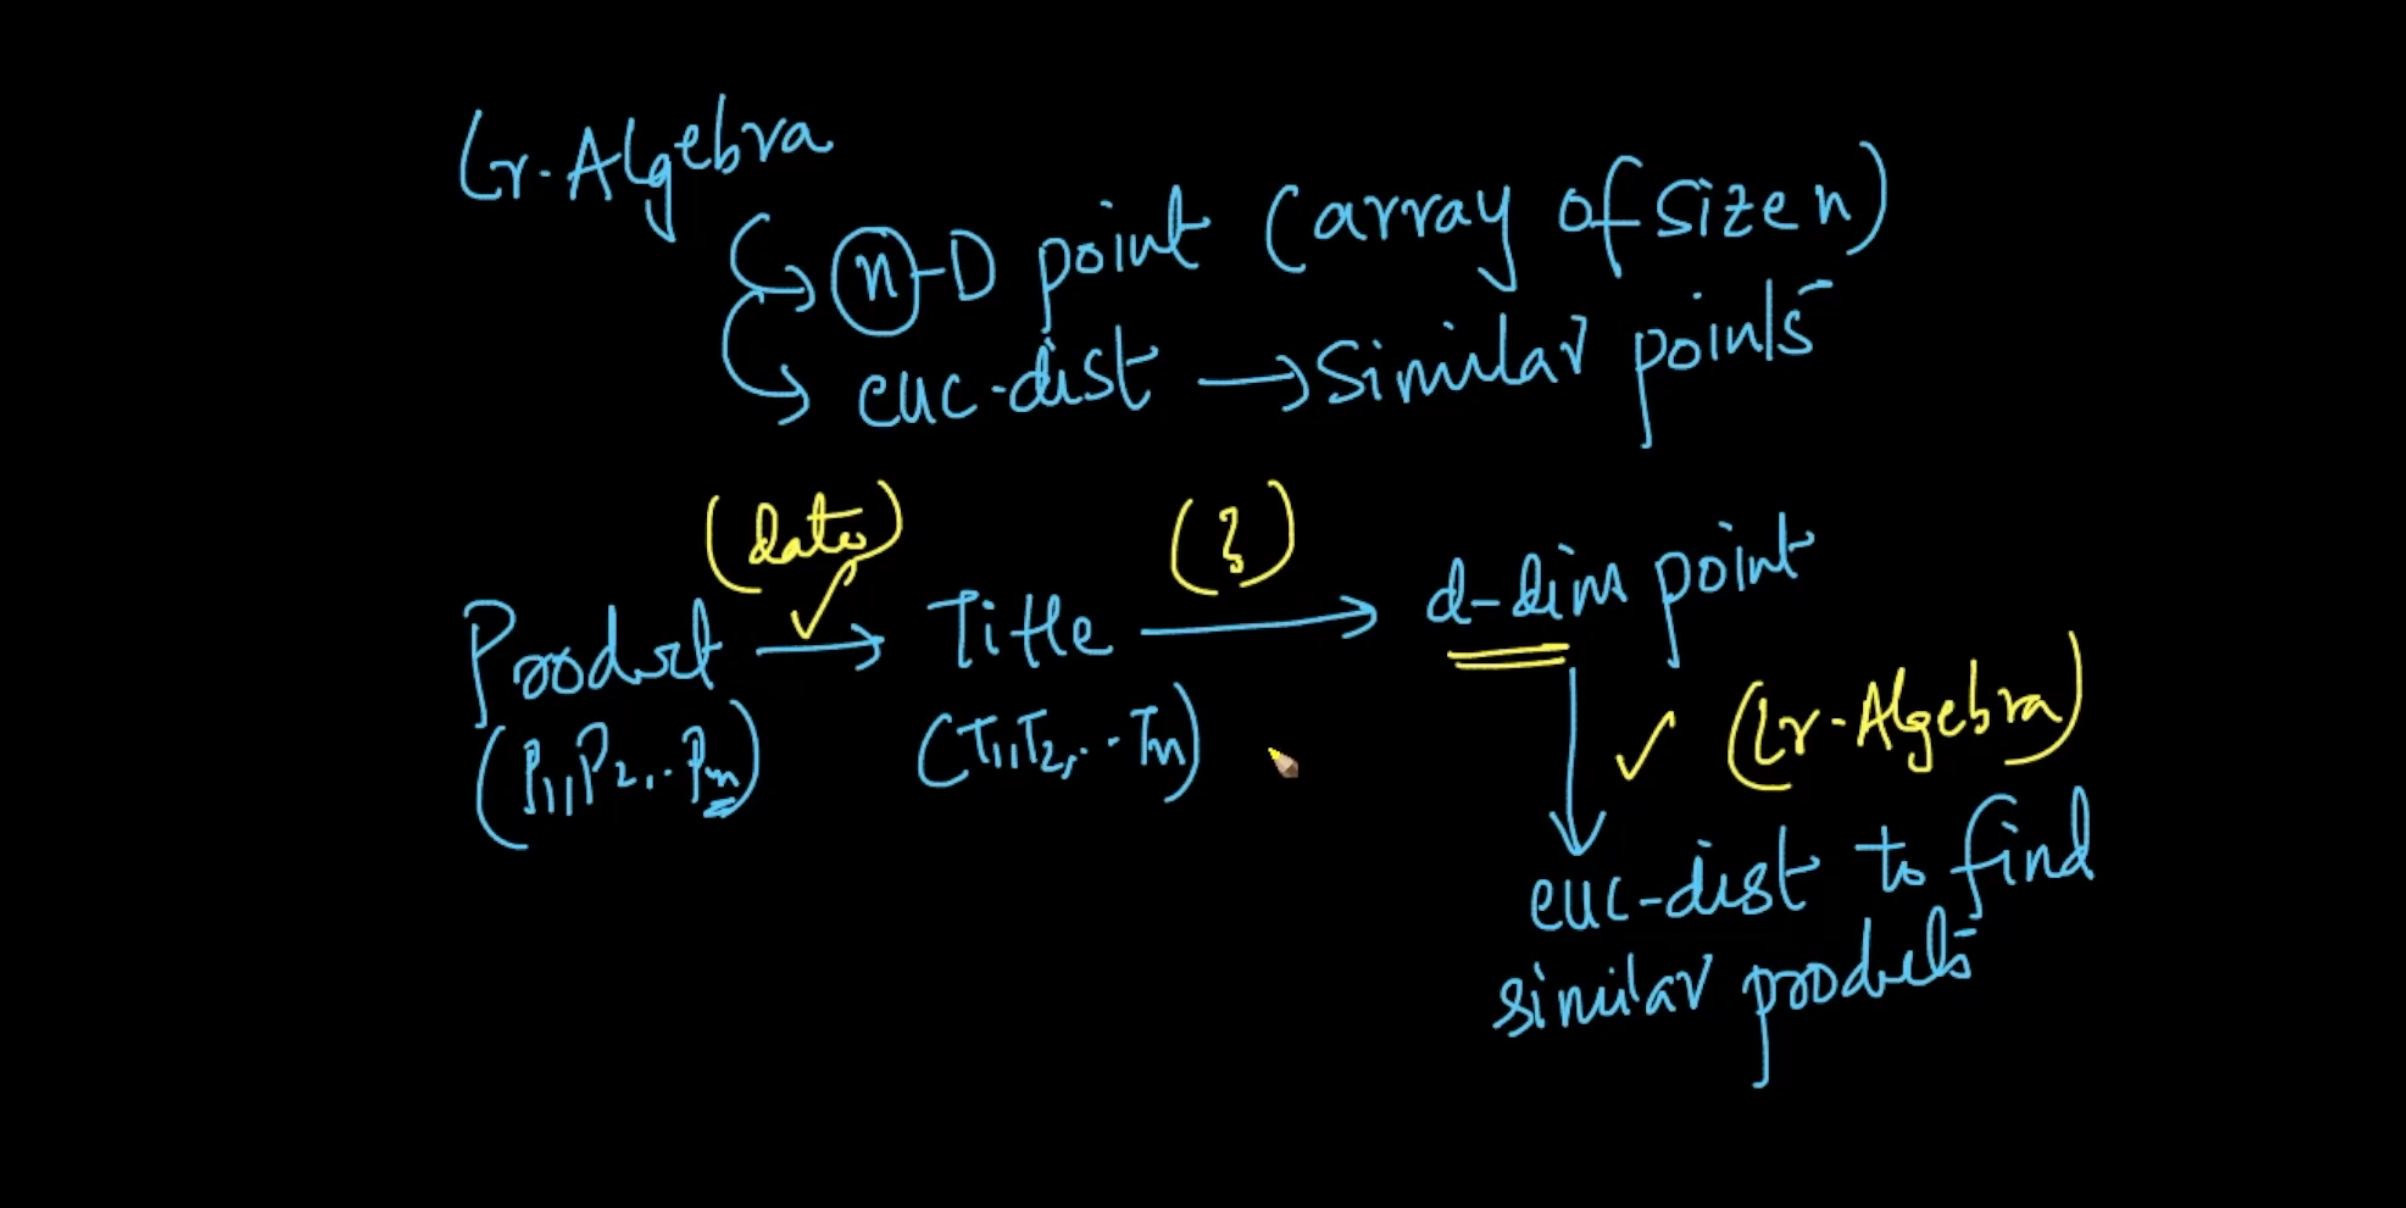 Lr-Algebra
n-D point (array of size n)
euc-dist → Similar points
(data) (?)
Product → Title → d-dim point
✓
(P1, P2, .. Pn) (T1, T2, .. Tn) ✓ (Lr-Algebra)
euc-dist to find
similar products